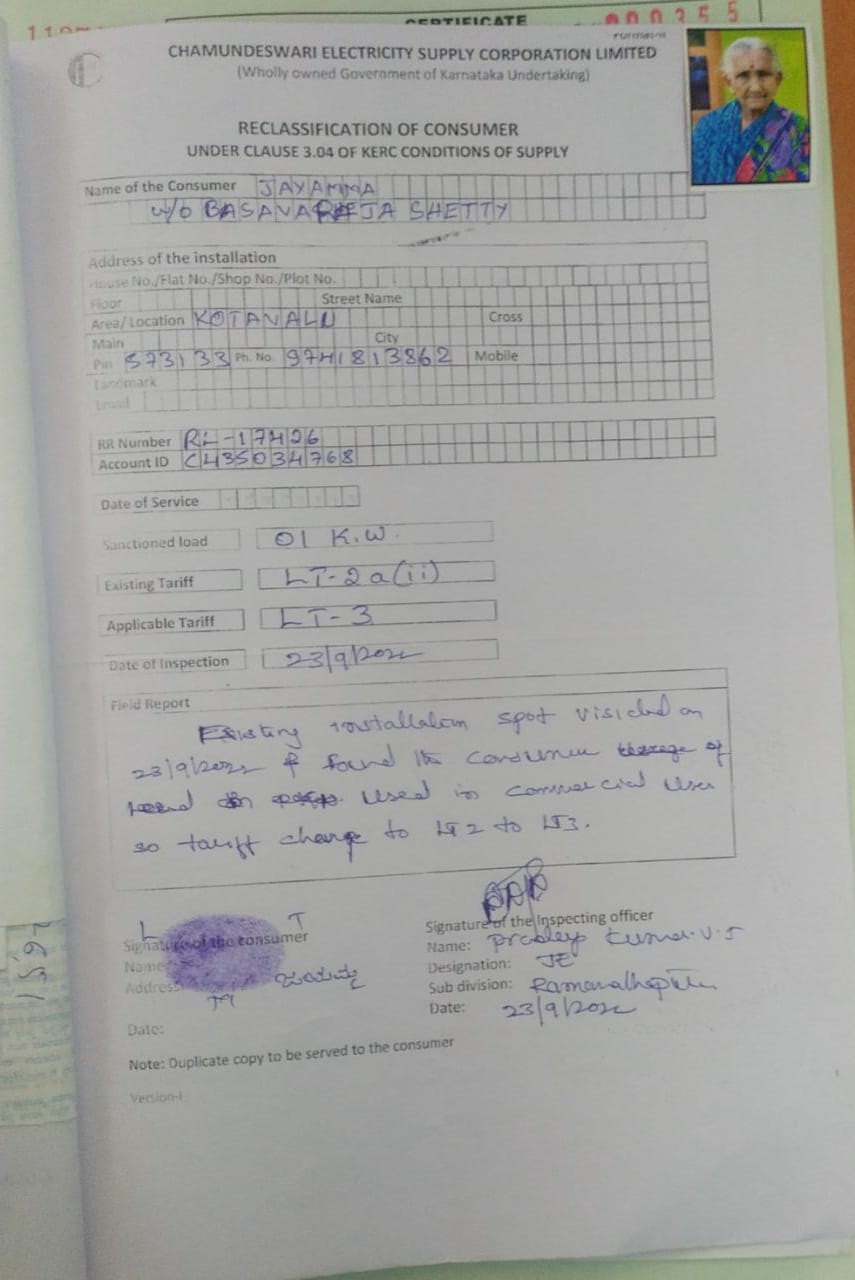 CERTIFICATE
000355
CHAMUNDESWARI ELECTRICITY SUPPLY CORPORATION LIMITED
(Wholly owned Government of Karnataka Undertaking)
RECLASSIFICATION OF CONSUMER
UNDER CLAUSE 3.04 OF KERC CONDITIONS OF SUPPLY
Name of the Consumer JAYAMMA
W/O BASAVARAJA SHETTY
Address of the installation
House No./Flat No./Shop No./Plot No.
Floor Street Name
Area/ Location KOTAVALU Cross
Main City
Pin 573133 Ph. No. 9741813862 Mobile
Landmark
Email
RR Number RL-17426
Account ID C435034768
Date of Service
Sanctioned load 01 K.W.
Existing Tariff LT-2a(ii)
Applicable Tariff LT-3
Date of Inspection 23/9/2022
Field Report
Existing installation spot visicted on
23/9/2022 & found the consumer of
Used in commercial User
so tariff change to LT2 to LT3.
L T
Signature of the consumer
Name
Address
M ಜಯಮ್ಮ
Date:
Signature of the Inspecting officer
Name: Pradeep Kumar.V.S
Designation: JE
Sub division: Ramanathapura
Date: 23/9/2022
Note: Duplicate copy to be served to the consumer
Version-I